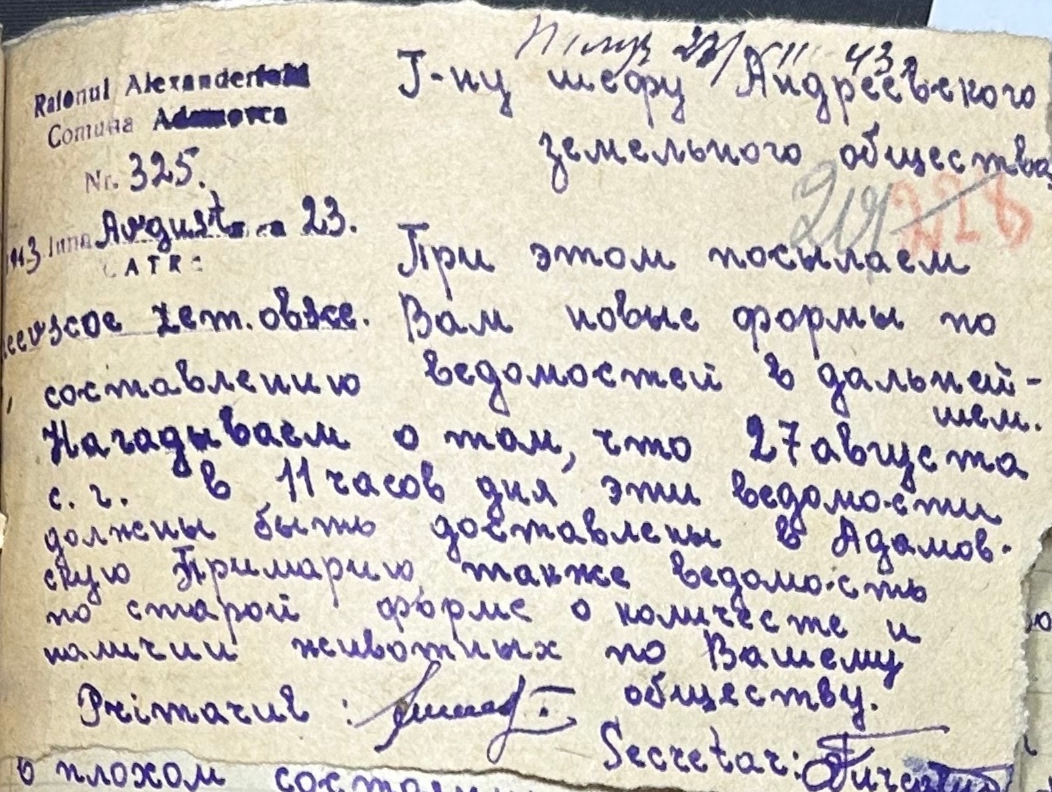 23/XII 43
Raionul Alexanderfeld
Comuna Adamovca
Nr. 325.
1943 luna August 23.
CATRE
Г-ну шефу Андреевского
земельного общества
217 218
При этом посылаем
zem. obsce. Вам новые формы по
составлению ведомостей в дальней-
шем.
Нагадываем о том, что 27 августа
с. г. в 11 часов дня эти ведомости
должны быть доставлены в Адамов-
скую Примарию, также ведомость
по старой форме о количесте и
наличии животных по Вашему
обществу.
Primarul :
Secretar:
в плохом